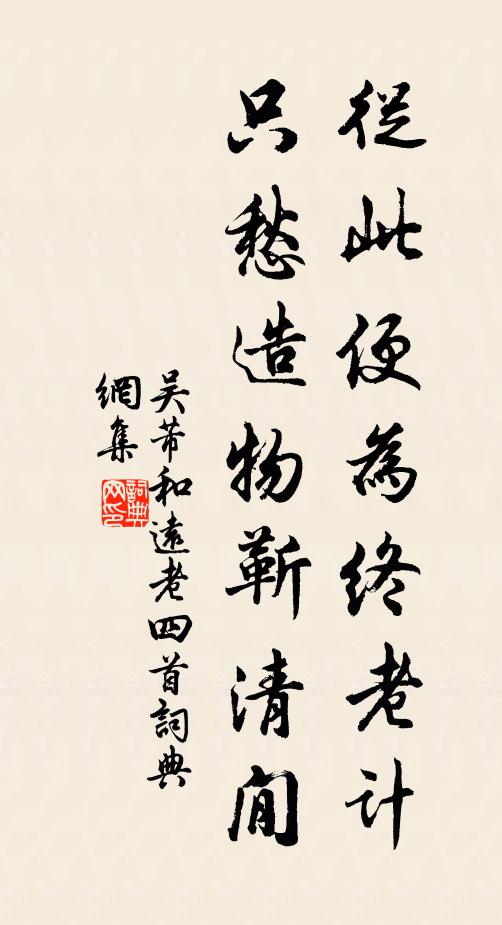 從此便為終老計
只愁造物靳清閒
吴芾和遠老四首詞典
網集
詞典
网印